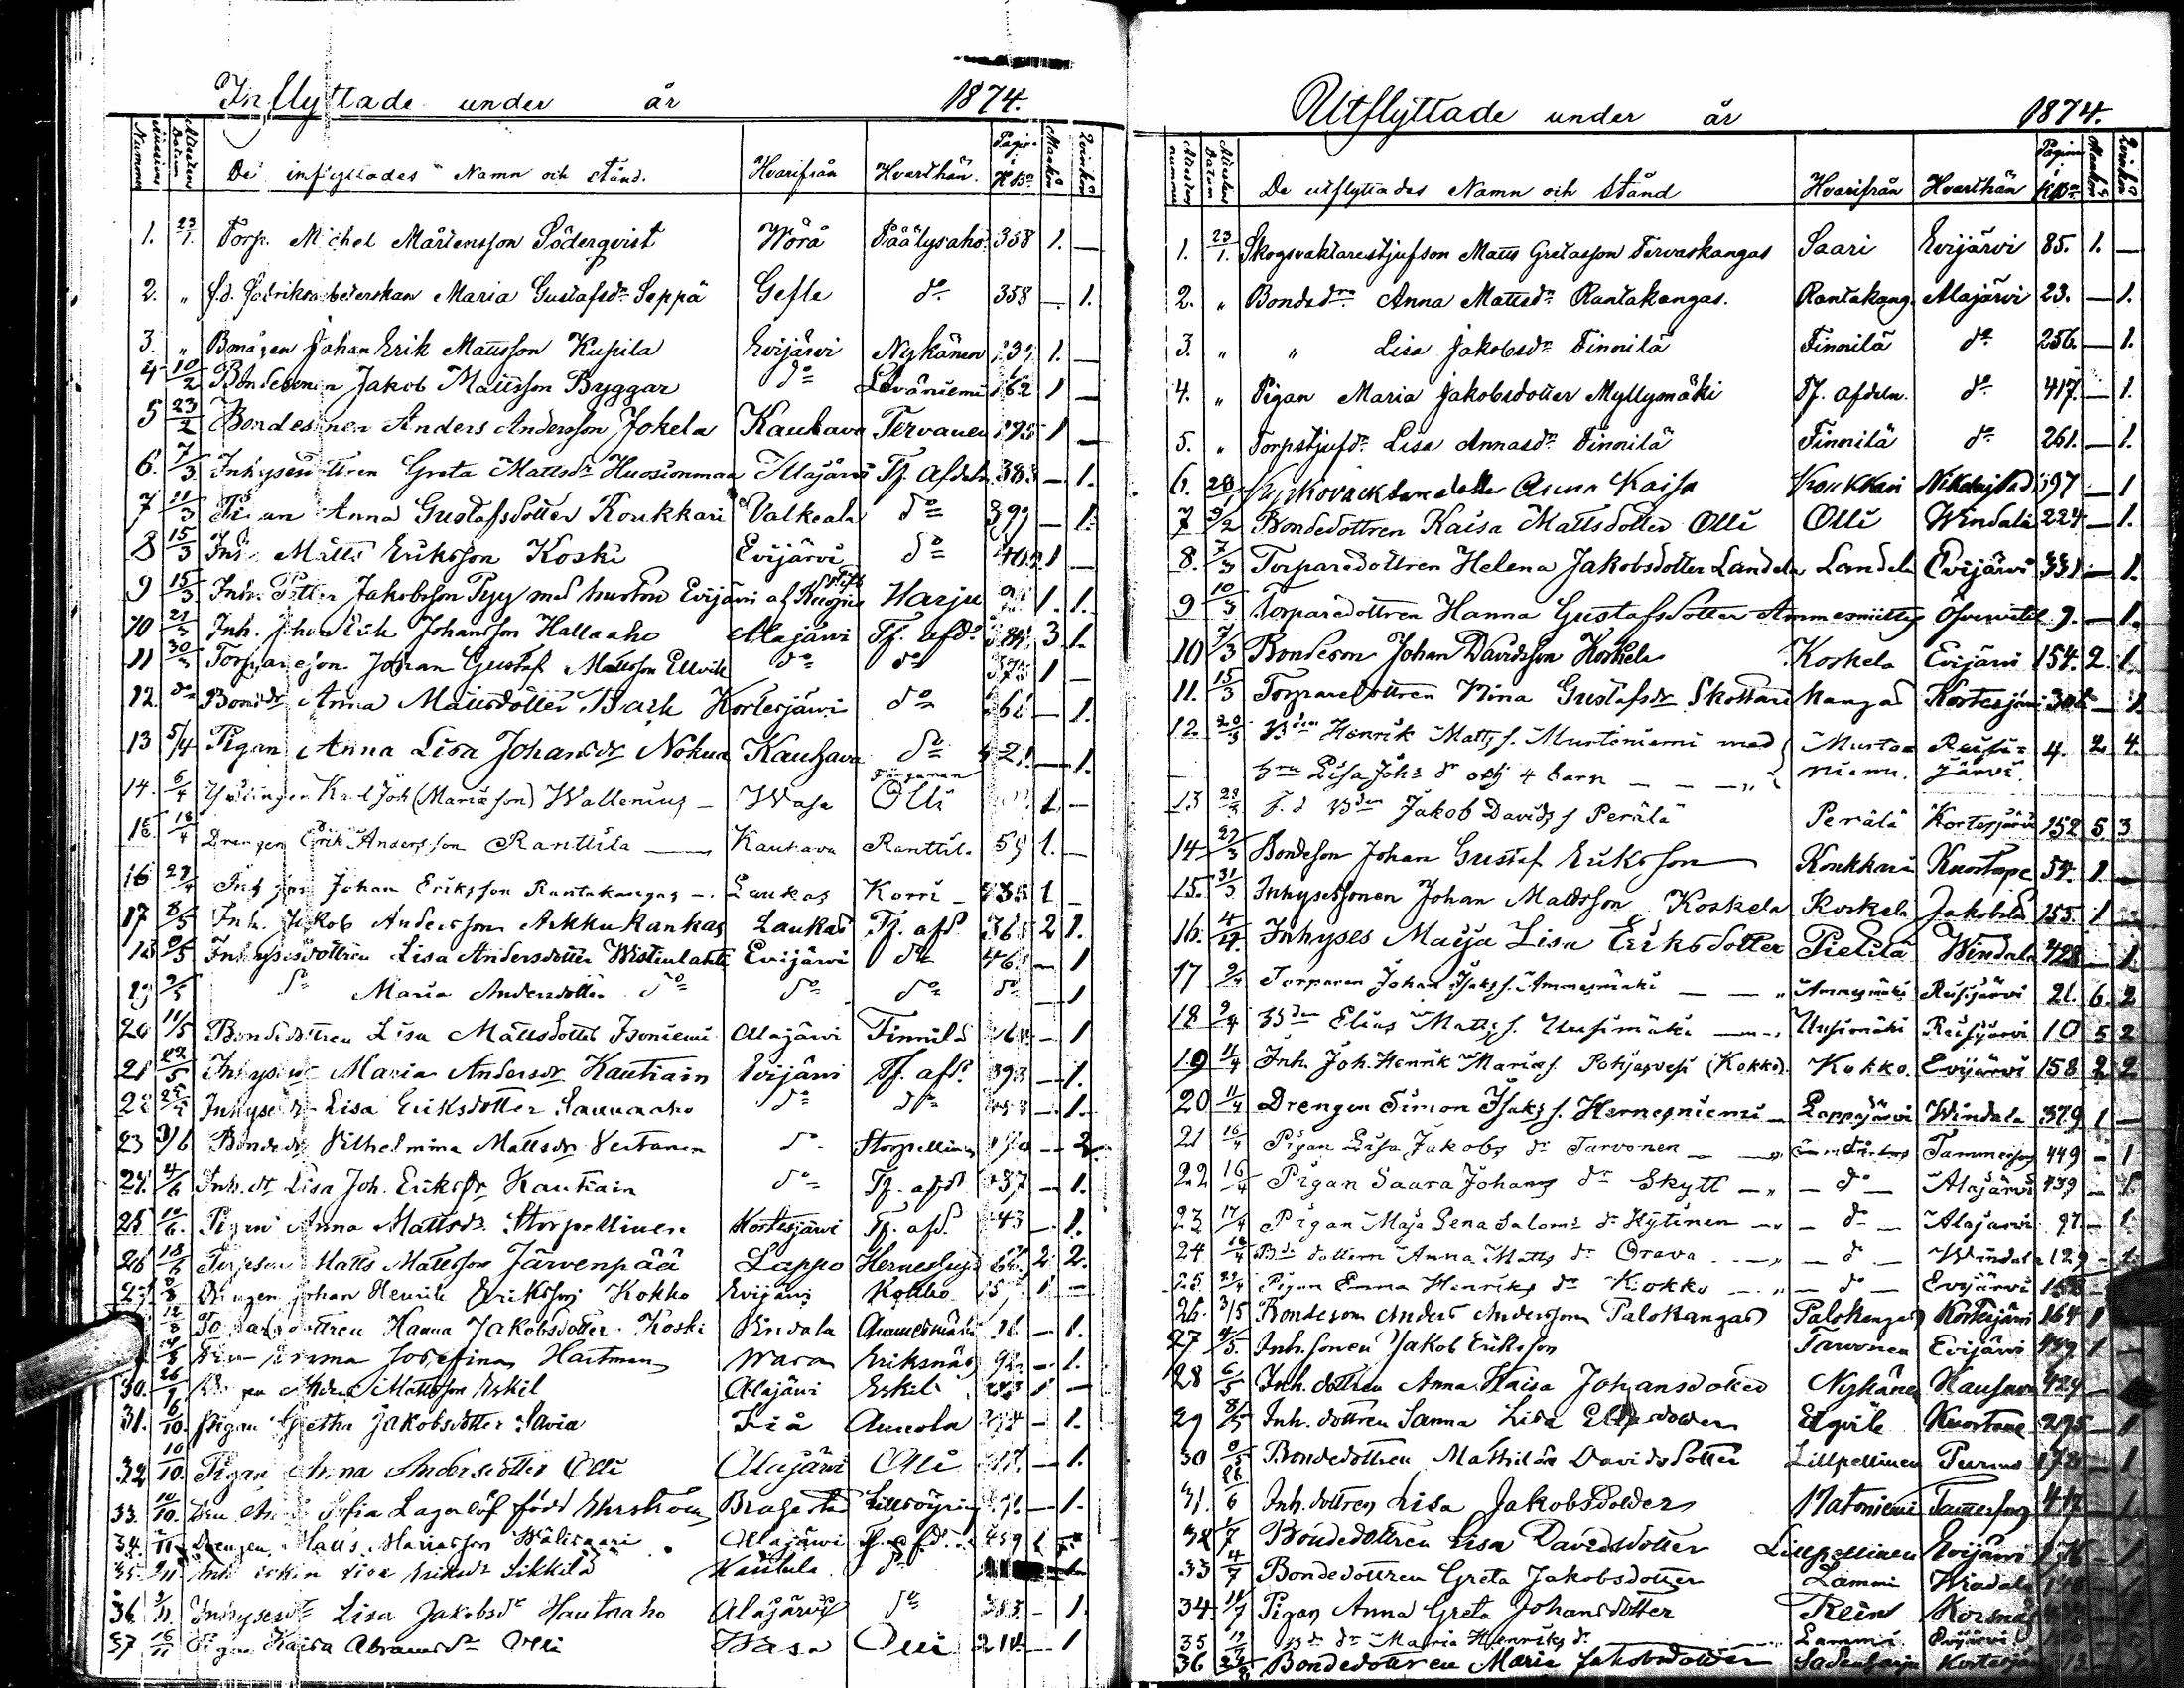 Inflyttade under år 1874.
Attestens Nummer Attestens Datum De inflyttades Namn och stånd. Hvarifrån Hvarthän. Pagin. i K.B. Mankön Qvinkön
1. 23/1. Torp. Michel Mårtensson Söderqvist Wörå Päälysaho 358 1. —
2. „ f.d. Fabriksarbeterskan Maria Gustafsdr Seppä Gefle do 358 — 1.
3. „ Bmågen Johan Erik Mattsson Kupila Evijärvi Nykänen 1. —
4 10/2 Bondesonen Jakob Mattsson Byggar do Leväniemi 162 1 —
5 23/2 Bondesonen Anders Andersson Jokela Kauhava Tervanen 195 1 —
6. 7/3 Inhysesdottren Greta Mattsdr Huosionmaa Alajärvi Tf. Afdeln. 383 — 1.
7 11/3 Pigan Anna Gustafsdotter Koukkari Valkeala do 399 — 1.
8 15/3 Inh. Matts Eriksson Koski Evijärvi do 1 —
9 15/3 Inh. Petter Jakobsson Pyy med hustru Evijärvi af Kuopio Stift Harju 1. 1.
10 21/3 Inh. Johan Erik Johansson Hallaaho Alajärvi Tf. afd. 384 3 1.
11 30/3 Torpareson Johan Gustaf Mattsson Ellvik do do 375 1 —
12. do Bondedr Anna Mattsdotter Back Kortesjärvi do — 1.
13 5/4 Pigan Anna Lisa Johansdr Nokua Kauhava do 421 — 1.
14. 6/4 Ynglingen Karl Joh (Mariæson) Wallenius — Wasa Färgaren Olli 1. —
15 18/4 Drengen Erik Andersson Ranttila — Kauhava Ranttil. 59 1. —
16 27/4 Johan Eriksson Rantakangas — Laukas Korri — 1 —
17 8/5 Inh. Jakob Andersson Akkukankas Laukas Tf. afd. 365 2 1.
18 9/5 Inhysesdottren Lisa Andersdotter Wistinlahti Evijärvi do 46 — 1
19 9/5 do Maria Andersdotter do do do do — 1
20 11/5 Bondedottren Lisa Mattsdotter Isoniemi Alajärvi Finnilä — 1
21 22/5 Inhysesdr Maria Andersdr Kautiain Evijärvi Tf. afd. 393 — 1.
22 22/5 Inhysesdr Lisa Eriksdotter Saunaaho do do — 1.
23 3/6 Bondedr Vilhelmina Mattsdr Vertanen do Storpellinen 170 — 2
24. 4/6 Inh. dr Lisa Joh. Eriksdr Kautiain do Tf. afd. — 1.
25 10/6. Pigan Anna Mattsdr Storpellinen Kortesjärvi Tf. afd. — 1.
26 18/6 Matts Mattsson Järvenpää Lappo 2 2.
Drengen Johan Henrik Eriksson Kokko Evijärvi Kokko 1 —
Hanna Jakobsdotter Koski Vindala — 1.
Josefina Hartman Wasa Eriksnäs 92 — 1.
30. 26/9 Mattsson Eskil Alajärvi Eskil 1 —
31. 6/10. Pigan Gretha Jakobsdotter Savia — 1.
32 10/10. Pigan Anna Andersdotter Olli Alajärvi Olli — 1.
33. 10/10. Sofia Lagerlöf född Brahestad — 1.
34. Drengen Matts Mariasson Alajärvi Tf. afd. 459 1
35. Lisa Sikkilä do 1.
36. Inhysesdr Lisa Jakobsdr Hautaaho Alajärvi do 383. — 1.
37 16/11 Pigan Kaisa Abramsdr Olli Wasa Olli 214 — 1
Utflyttade under år 1874.
Attestens nummer Attestens Datum De utflyttades Namn och Stånd Hvarifrån Hvarthän Pagina i K.B. Mankön Qvinkön
1. 23/1. Skogsvaktarestjufson Matts Gretasson Tervaskangas Saari Evijärvi 85. 1. —
2. „ Bondedrn Anna Mattsdr Rantakangas. Rantakang. Alajärvi 23. — 1.
3. „ „ Lisa Jakobsdr Finnilä Finnilä do 256. — 1.
4. „ Pigan Maria Jakobsdotter Myllymäki Tf. afdeln. do 417. — 1.
5. „ Torpstjufdr Lisa Annasdr Finnilä Finnilä do 261. — 1.
6. 28/1 Kyrkovaktaredotter Anna Kaisa Koukkari Nikolaistad 397 — 1
7 9/2 Bondedottren Kaisa Mattsdotter Olli Olli Windala 224 — 1.
8. 7/3 Torparedottren Helena Jakobsdotter Landela Landela Evijärvi 331 — 1.
9 10/3 Torparedottren Hanna Gustafsdotter Ammesmäki Öfvervetil 9. — 1.
10 7/3 Bondeson Johan Davidsson Koskela Koskela Evijärvi 154. 2. 1.
11. 15/3 Torparedottren Nina Gustafsdr Skottari Kangas Kortesjärvi — 1.
12. 20/3 Bden Henrik Matts s. Murtoniemi med Murtoniemi. Reisijärvi. 4. 2. 4.
hru Lisa Johs dr och 4 barn — — — „
13 28/3 f.d Bden Jakob Davids s Perälä Perälä Kortesjärvi 152 5 3
14 27/3 Bondeson Johan Gustaf Eriksson Koukkari Kuortane 54. 1. —
15. 31/3 Inhysessonen Johan Mattsson Koskela Koskela Jakobstad 155. 1 —
16. 4/4 Inhyses Maija Lisa Eriksdotter Pietilä Windala 428 — 1.
17 9/4 Torparen Johan Isaks s. Ammesmäki — „ Ammesmäki Reisijärvi 21. 6. 2
18 9/4 Bden Elias Matts s. Uusimäki Uusimäki Reisijärvi 10 5 2
19 11/4 Inh. Joh. Henrik Marias s. Pohjasvesi (Kokko). Kokko. Evijärvi 158 2 2
20 11/4 Drengen Simon Isaks s. Hernesniemi — Lappajärvi Windala 379 1 —
21 16/4 Pigan Lisa Jakobs dr Tarvonen — Tammerfors 449 — 1
22 16/4 Pigan Saara Johans dr Skytt — „ — do — Alajärvi 439 — 1.
23 17/4 Pigan Maja Lena Saloms dr Hytinen — „ — do — Alajärvi 97 — 1.
24 18/4 Bde dottern Anna Matts dr Orava — „ — do — Windala 129 — 1.
25 24/4 Pigan Emma Henriks dr Kokko — „ — do — Evijärvi 158
26. 3/5 Bondeson Anders Andersson Palokangas Palokangas Kortesjärvi 164 1
27 4/5. Inh. sonen Jakob Eriksson Tarvonen Evijärvi 449 1 —
28 6/5 Inh. dottren Anna Kaisa Johansdotter Nykänen Kauhava 424 —
29 8/5 Inh. dottren Sanna Lisa Eliasdotter Elgvik Kuortane 295 — 1
30 9/5 Bondedottren Mathilda Davidsdotter Lillpellinen Purmo 173 — 1
31. 28/6 Inh. dottren Lisa Jakobsdotter Matoniemi Tammerfors 417 — 1.
32 1/7 Bondedottren Lisa Davidsdotter Lillpellinen Evijärvi 176 — 1
33 4/7 Bondedottren Greta Jakobsdotter Lammi Windala — 1
34 11/7 Pigan Anna Greta Johansdotter Klein Korsnäs — 1
35 19/7 Bde dr Maria Henriks dr Lammi Evijärvi
36 Bondedottren Maria Jakobsdotter Sadenharju Kortesjärvi